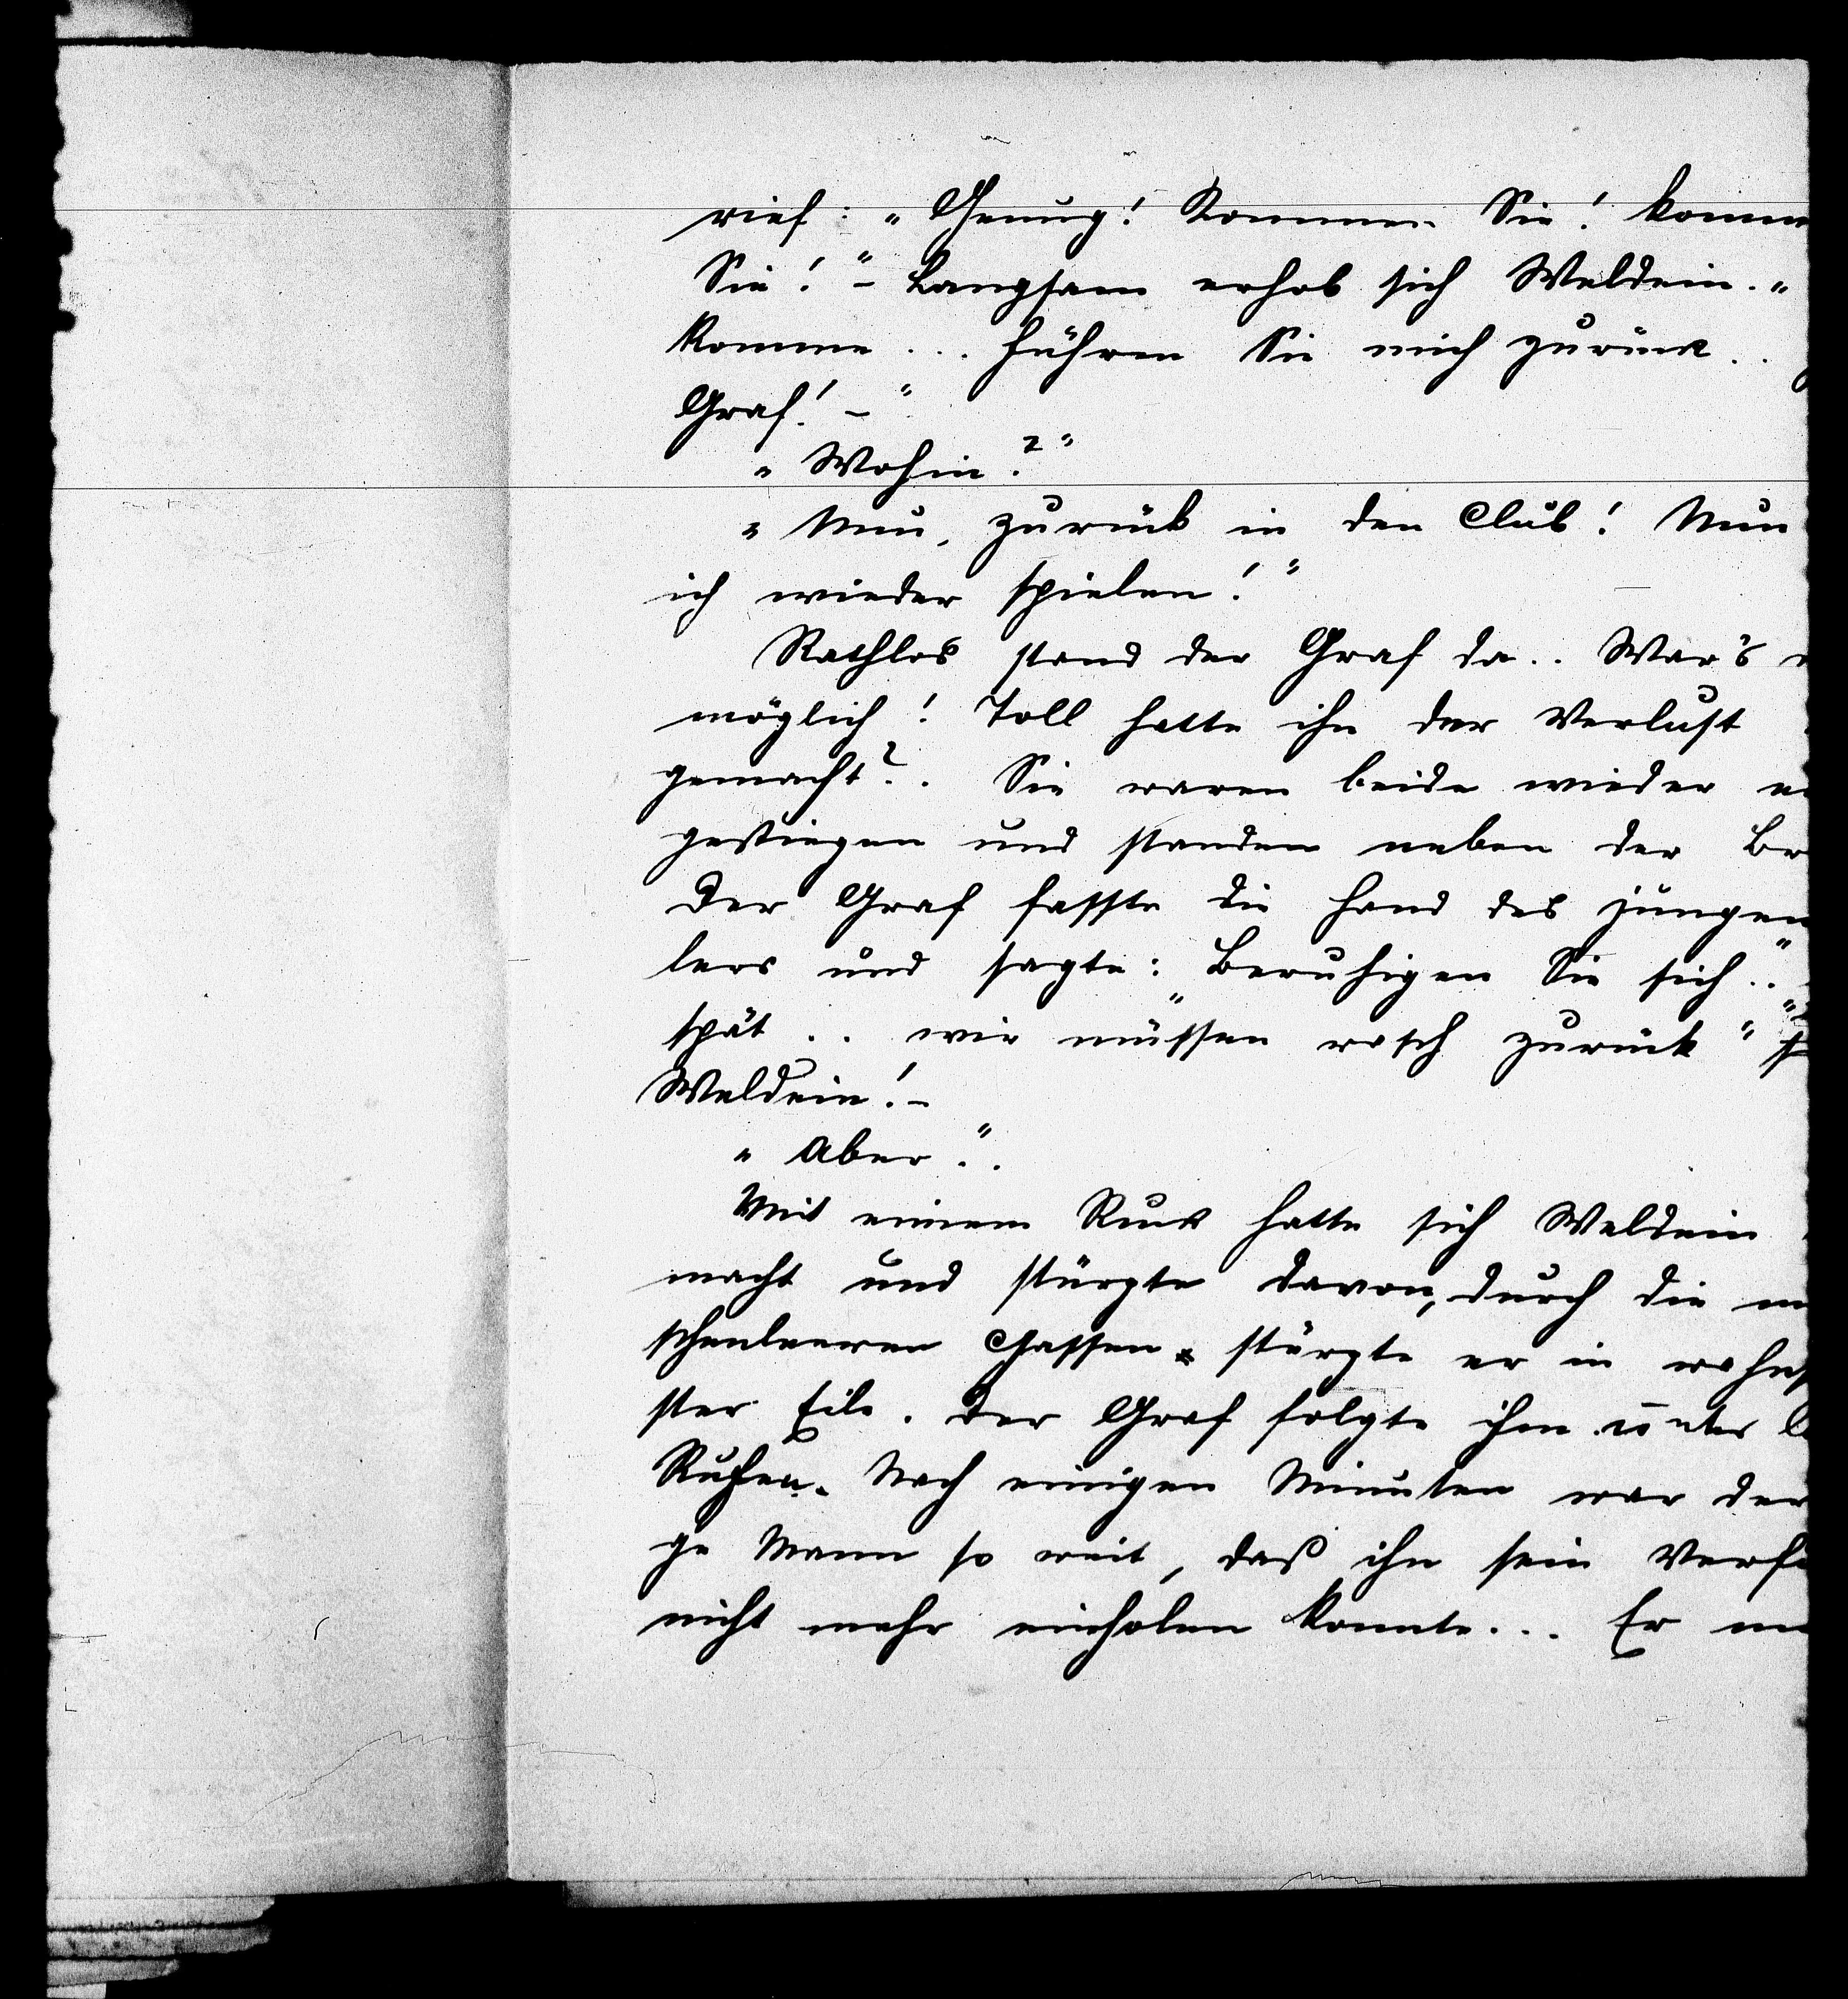 rief: „Genug! Kommen Sie! komm
Sie!“ – Langsam erhob sich Weldein. „
komme ... führen Sie mich zurück ..
Graf! –“
„Wohin?“
„Nun, zurück in den Club! Nun
ich wieder spielen!“
Rathlos stand der Graf da .. War's
möglich! Toll hatte ihn der Verlust
gemacht? .. Sie waren beide wieder
gestiegen und standen neben der Br
Der Graf fasste die Hand des jungen
lers und sagte: „Beruhigen Sie sich ..“
spät .. wir müssen rasch zurück“
Weldein! –
„Aber ..“
Mit einem Ruck hatte sich Weldein
macht und stürzte davon, durch die m
schenleeren Gassen stürzte er in wahns
ster Eile. Der Graf folgte ihm unter l
Rufen. Nach einigen Minuten war der
ge Mann so weit, daß ihn sein Verfo
nicht mehr einholen konnte ... Er